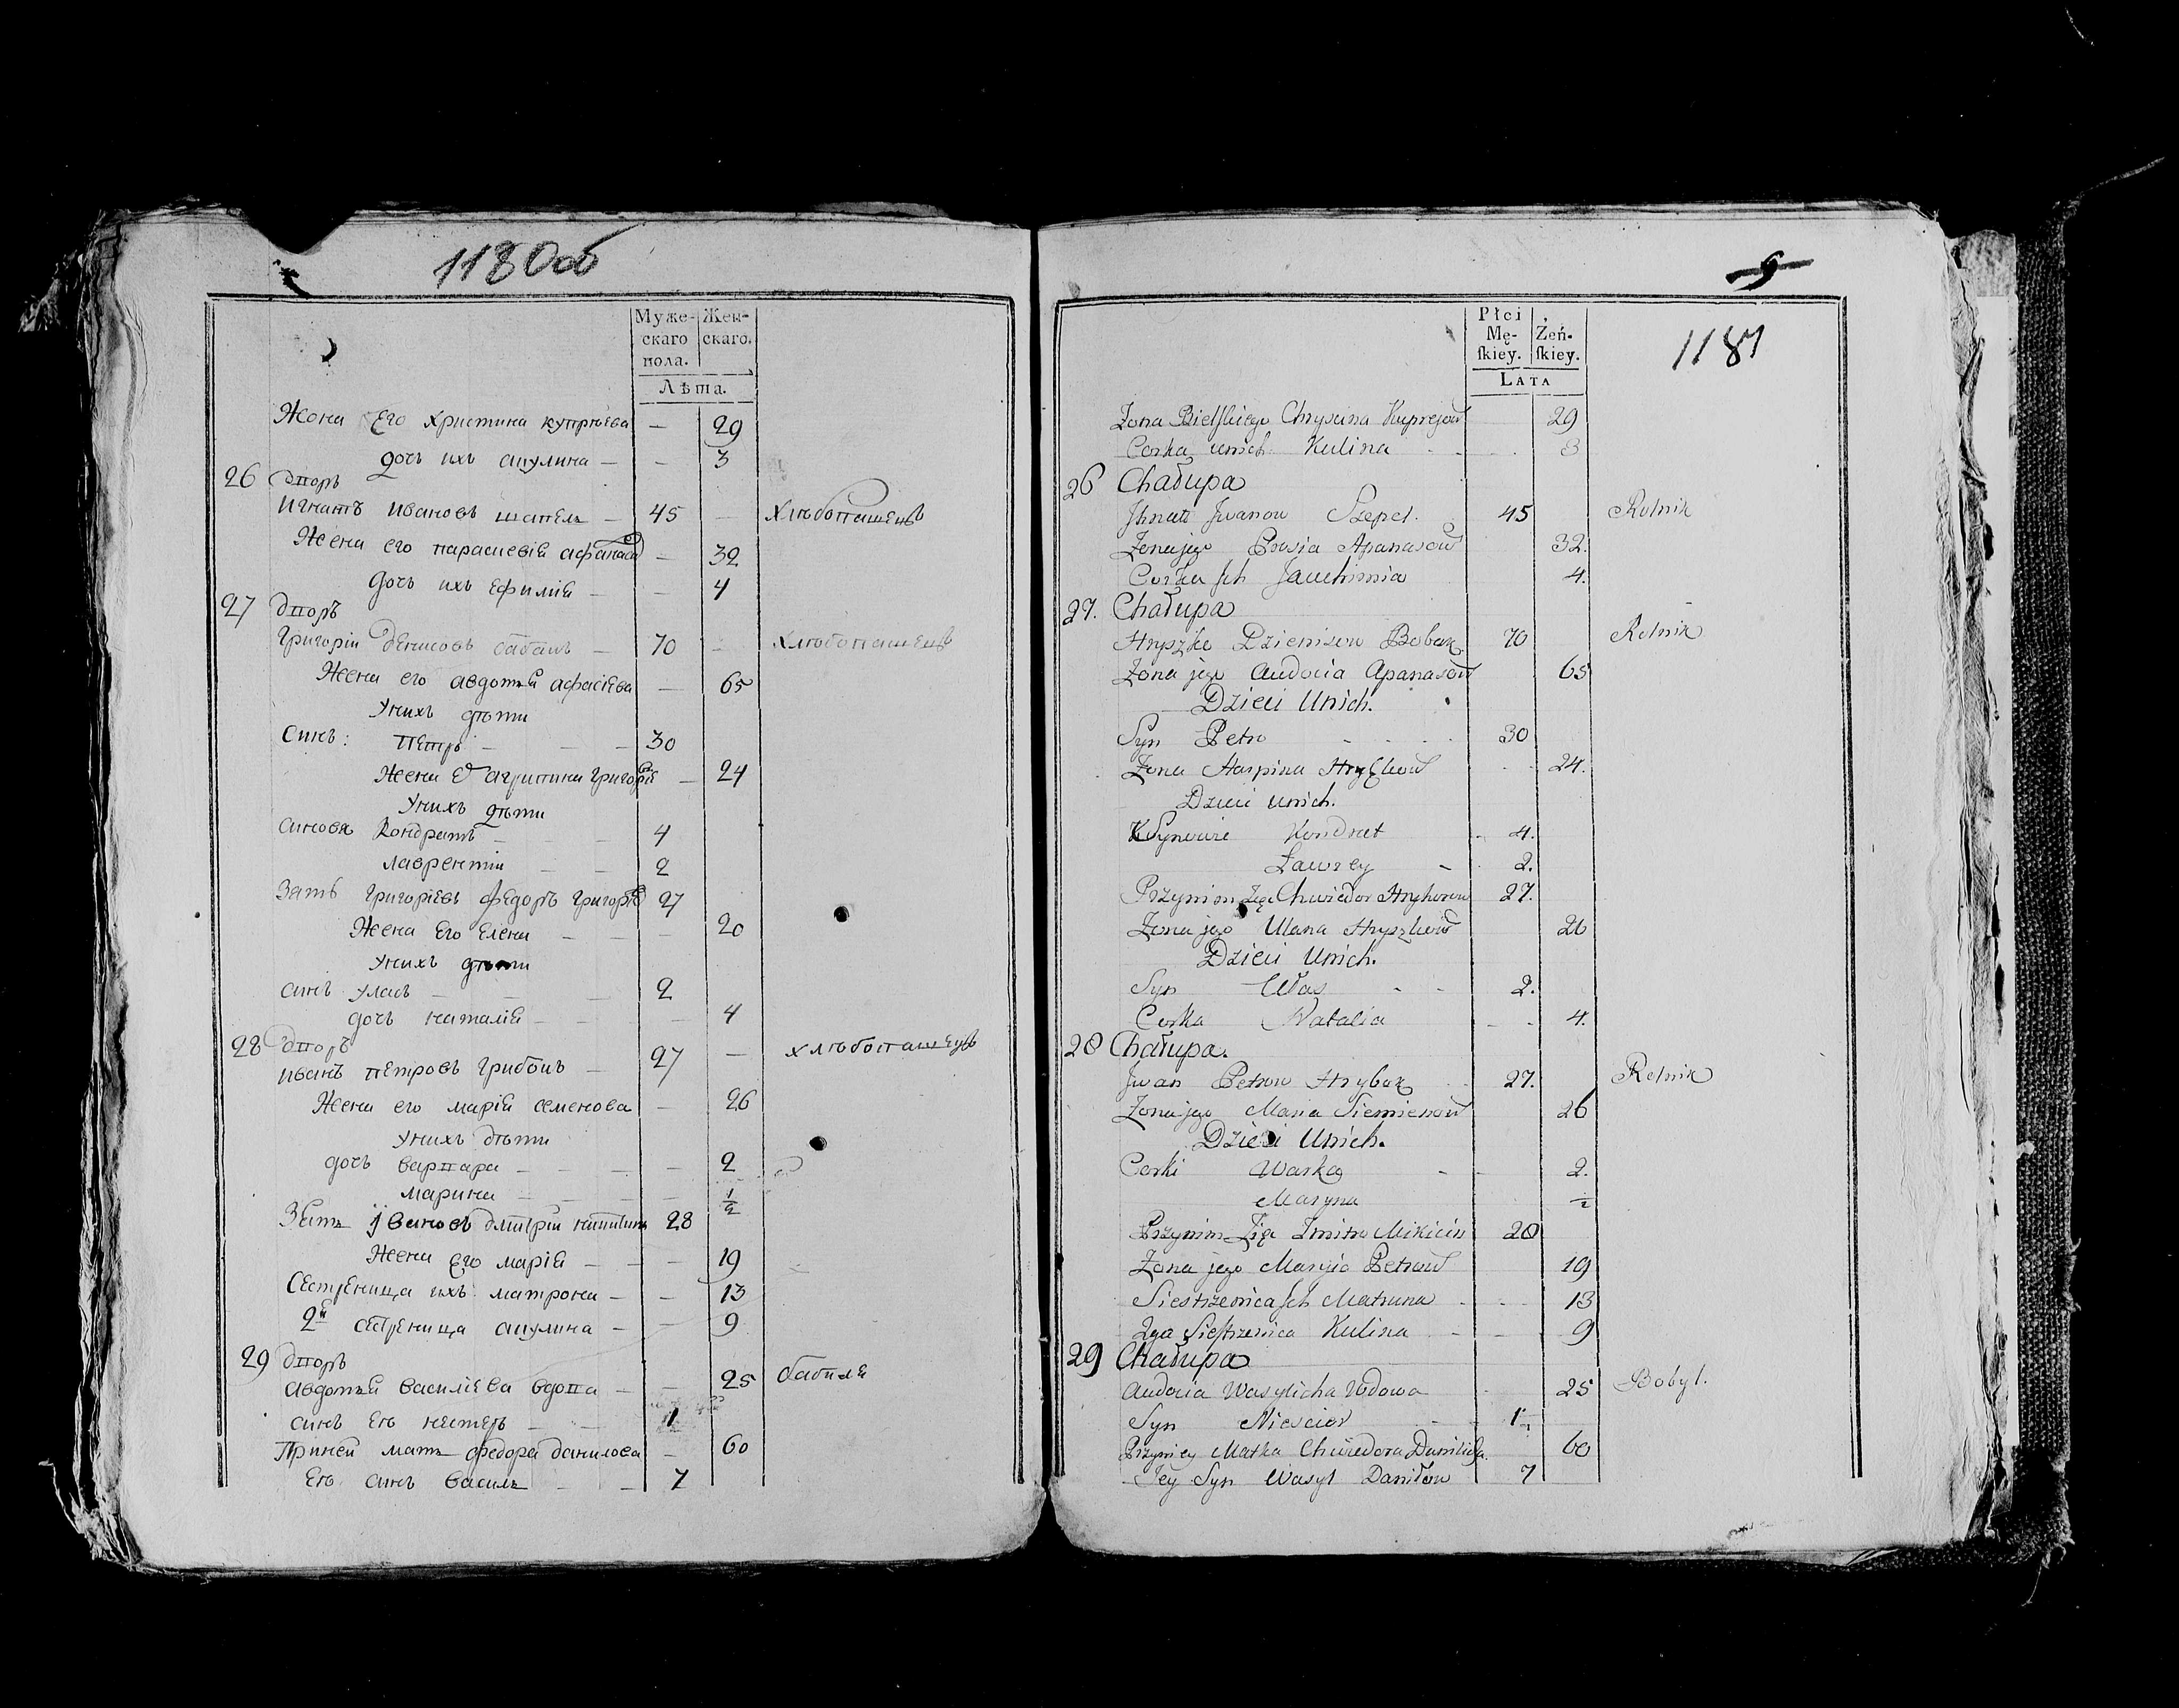 1180об
Муже-
скаго
пола.
Жен-
скаго.
Лѣта.
Жена Его христина купріева — 29
дочь ихъ акулина — — 3
26 дворъ
Игнатъ ивановъ шапель — 45 — хлѣбопашецъ
Жена его параскевія афанас — 32
дочь ихъ Ефимія — — 4
27 дворъ
Григоріи денисовъ бабакъ — 70 — хлѣбопашецъ
Жена его авдотья — 65
Унихъ дѣти
синъ: петръ — — — 30
Жена Ег агрипина григорі — 24
Унихъ дѣти
синовя кондратъ — — — 4
лаврентіи — — 2
Зять григоріевъ федоръ григорі 27
Жена Его Елена — — — 20
Унихъ дѣти
синъ уласъ — — — 2
дочь наталія — — — 4
28 дворъ
иванъ петровъ грибокъ — 27 — хлѣбопашецъ
Жена его марія семенова — 26
Унихъ дѣти
дочь варвара — — — — 2
марина — — — — 1/2
Зять івановъ дмітріи 28
Жена Его марія — — — 19
Сестреница ихъ матрона — — 13
2я сестреница акулина — — 9
29 дворъ
авдотья василіева вдова — — 25 бабиля
синъ Ею нестеръ — — 1
Приней мать федора данилова — 60
Ею синъ василь — — 7
9
1181
Płci
Mę-
skiey.
Żeń-
skiey.
LATA
Zona Bielskiego Chrystina Kuprejow 29
Corka unich Kulina - - . 3
26 Chałupa
Jhnat Jwanow Szepel. 45 Rolnik
Zona jego Prasia Apanasow 32.
Corka Jch Jauchimia 4.
27. Chałupa
Hryszko Dzienisow Babak 70 Rolnik
Zona jego Audocia Apanasow 65
Dzieci Unich.
Syn Petro - . . . 30
Zona Harpina Hryszkow - . 24.
Dzieci unich.
Synowie Kondrat - 4.
Ławrey - 2.
Przyimon Zię Chwiedor Hryhorow 27.
Zona jego Ulana Hryszkow 20
Dzieci Unich.
Syn Ułas - - 2.
Corka Natalia - - 4.
28 Chałupa.
Jwan Petrow Hrybok 27. Rolnik
Zona jego Maria Siemienow 26
Dzieci Unich.
Corki Warka - - 2.
Maryna 1/2
Przyimon Zię Zmitro Mikicin 28
Zona jego Maryia Petrow 19
Siestrzenica Jch Matruna - - - 13
2ga Siestrzenica Kulina - - 9
29 Chałupa
Audocia Wasylicha Wdowa - 25 Bobyl.
Syn Niescior - 1.
Przyniey Matka Chwiedora Danilicha 60
Jey Syn Wasyl Daniłow 7